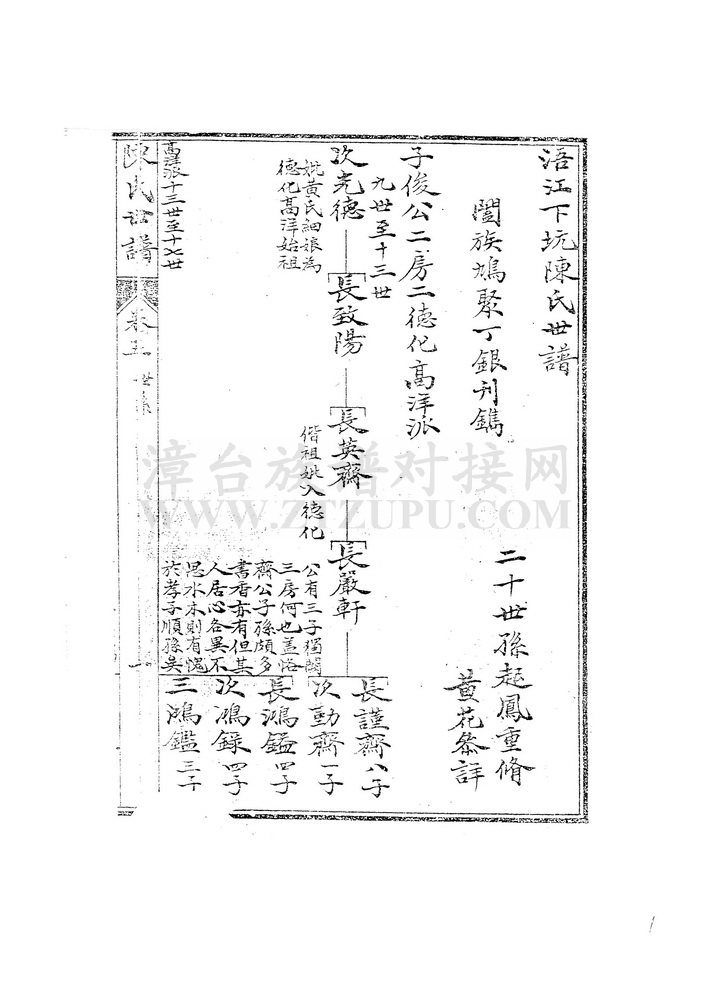 浯江下坑陳氏世譜
闔族鳩聚丁銀刊鐫
二十世孫起鳳重脩
黃花叅訂
子俊公二房二德化高洋派
九世至十三世
次光德
妣黃氏細娘為
德化高洋始祖
長致陽
長英齋
偕祖妣入德化
長嚴軒
公有三子獨闕
三房何也蓋恪
齋公子孫頗多
書香亦有但其
人居心各異不
思水木則有愧
於孝子順孫矣
長謹齋 八子
次勤齋 一子
長鴻鎰 四子
次鴻錄 四子
三鴻鑑 三子
高洋派十三世至十七世
陳氏世譜
卷五 世系
一
漳台族谱对接网
WWW.ZTZUPU.COM
1